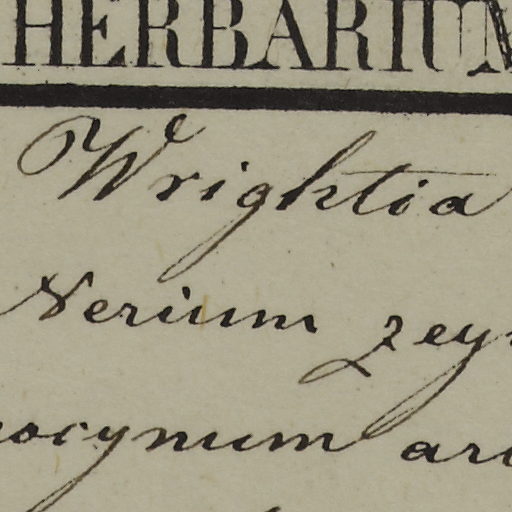 HERBARIUM
Wrightia
Nerium zey
ocynum ar